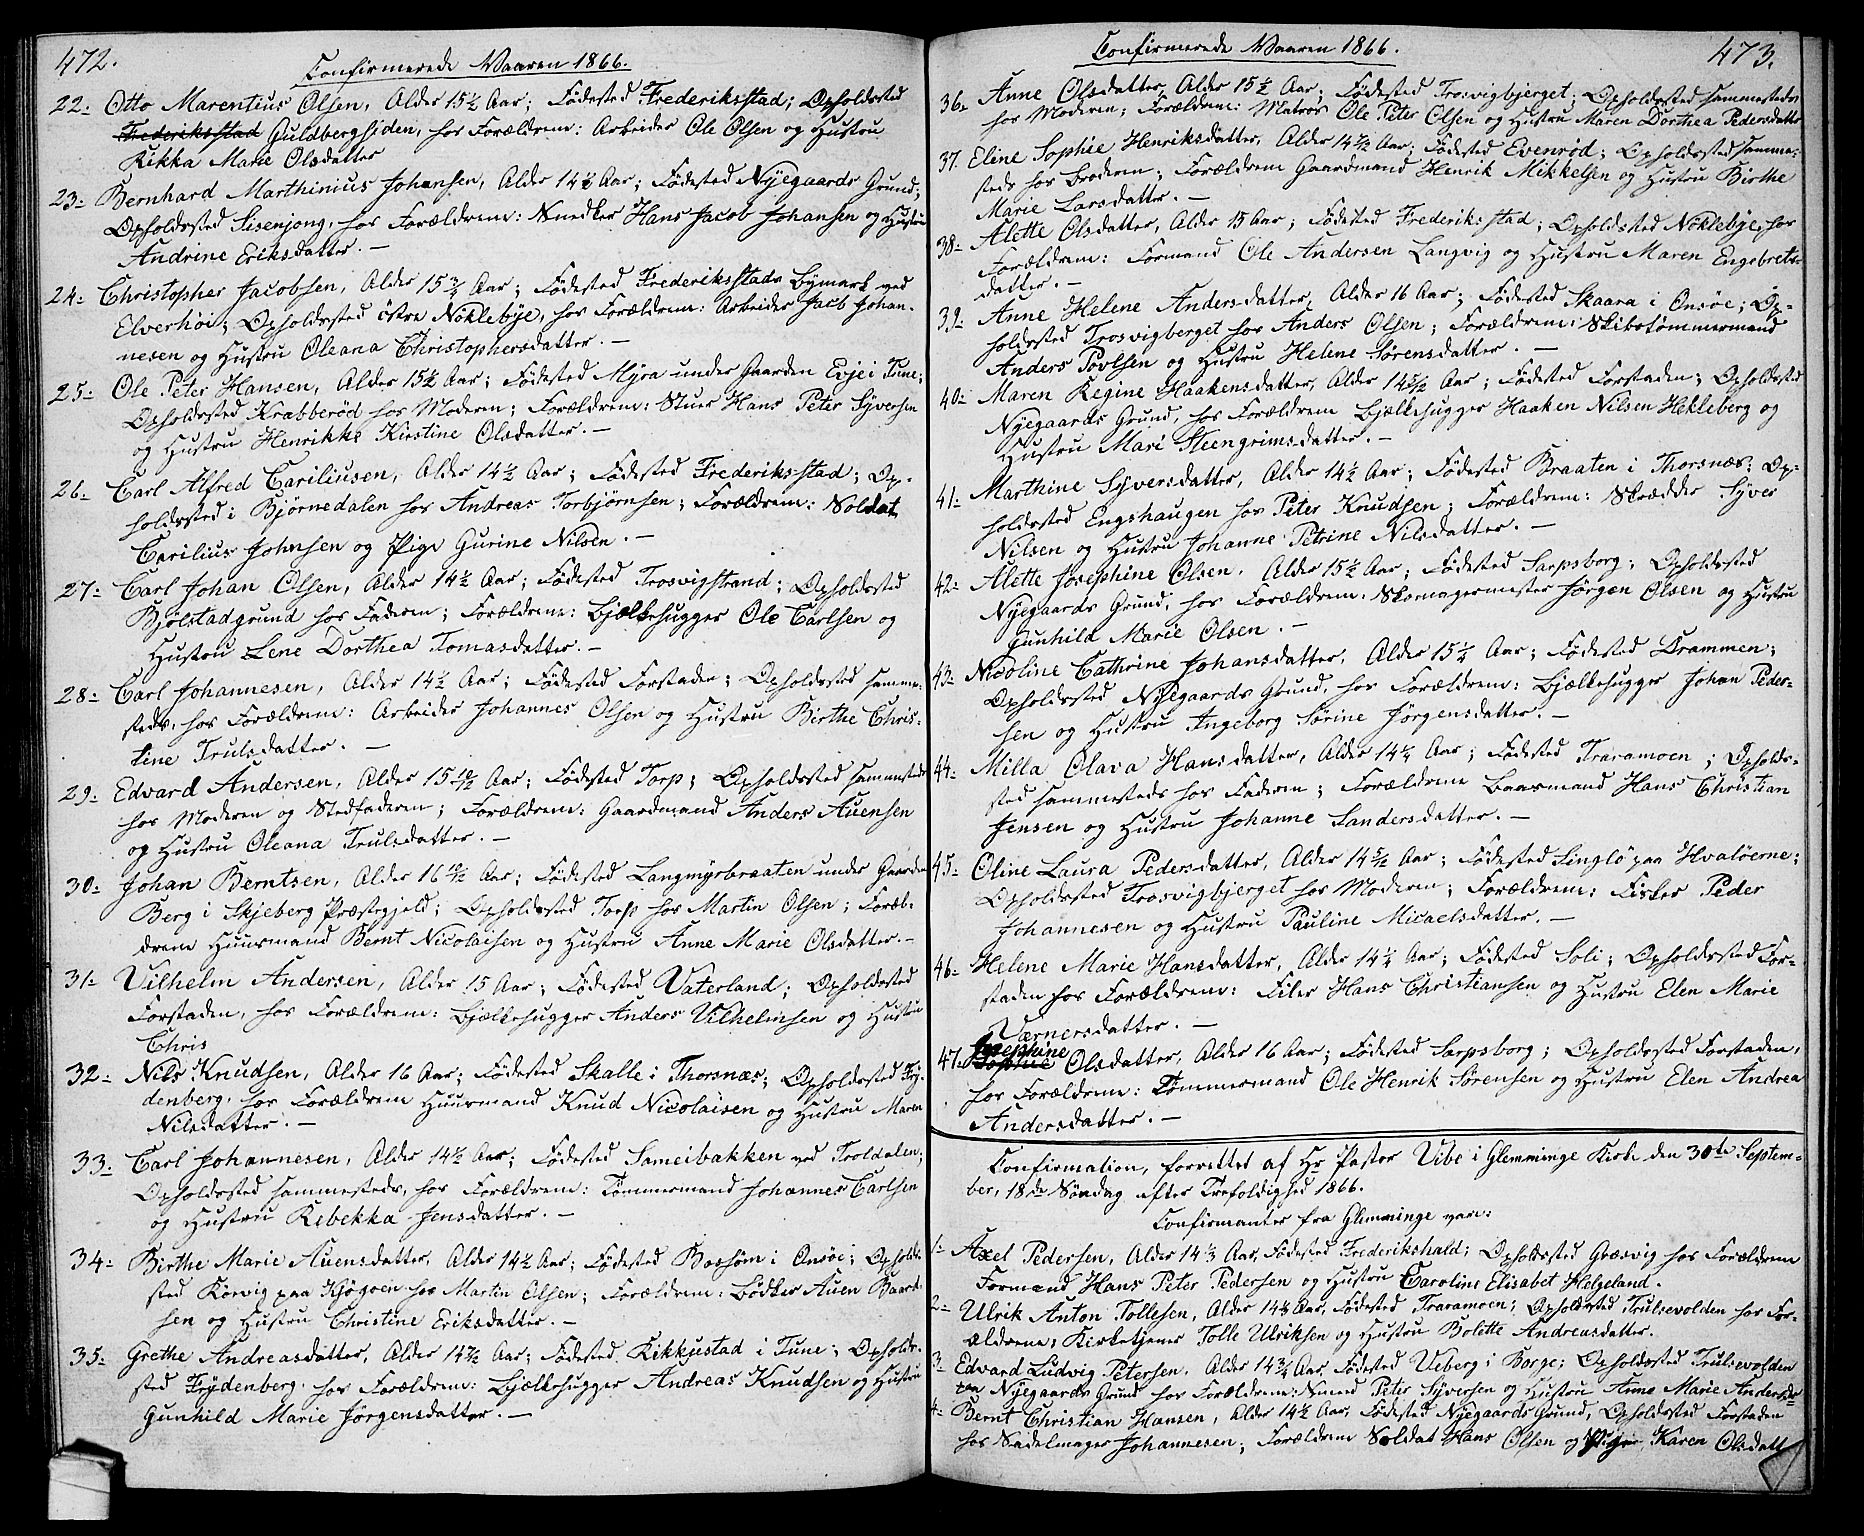 472.
Confirmerede Vaaren 1866.
22- Otto Marentius Olsen, Alder 15½ Aar; Fødested Frederiksstad; Opholdssted
Frederiksstad Guldbergsiden, hos Forældrene: Arbeider Ole Olsen og Hustru
Kikka Marie Olsdatter
23- Bernhard Marthinius Johansen, Alder 14½ Aar; Fødested Nyegaards Grund;
Opholdssted Sisenjong, hos Forældrene: Snedker Hans Jacob Johansen og Hustru
Andrine Eriksdatter. –
24- Christopher Jacobsen, Alder 15 Aar; Fødested Frederiksstads Bymark ved
Elverhöi; Opholdssted östre Nöklebye, hos Forældrene: Arbeider Jacb Johan-
nesen og Hustru Oleana Christophersdatter. –
25- Ole Peter Hansen, Alder 15½ Aar; Fødested Myra under Gaarden Evje i Tune;
Opholdssted Krabberød hos Moderen; Forældrene: Stuer Hans Peter Syversen
og Hustru Henrikke Kirstine Olsdatter. –
26- Carl Alfred Cariliusen, Alder 14½ Aar; Fødested Frederiksstad; Op-
holdssted i Bjørnedalen hos Andreas Torbjørnsen; Forældrene: Soldat
Carilius Johnsen og Pige Gurine Nilsen. –
27- Carl Johan Olsen, Alder 14½ Aar; Fødested Trosvigstrand; Opholdssted
Bjölstadgrund hos Faderen; Forældrene: Bjælkehugger Ole Carlsen og
Hustru Lene Dorthea Tomasdatter. –
28- Carl Johannesen, Alder 14½ Aar; Fødested Forstaden; Opholdssted samme-
steds, hos Forældrene: Arbeider Johannes Olsen og Hustru Birthe Chris-
tine Trulsdatter. –
29- Edvard Andersen, Alder 15 10/12 Aar; Fødested Torp; Opholdssted sammesteds
hos Moderen og Stedfaderen; Forældrene: Gaardmand Anders Auensen
og Hustru Oleana Trulsdatter. –
30- Johan Berntsen, Alder 16 Aar; Fødested Langmyrbraaten under Gaarden
Berg i Skjeberg Præstegjeld; Opholdssted Torp hos Martin Olsen; Foræl-
drene Huusmand Bernt Nicolaisen og Hustru Anne Marie Olsdatter. –
31- Vilhelm Andersen, Alder 15 Aar; Fødested Vaterland; Opholdssted
Forstaden, hos Forældrene: Bjælkehugger Anders Vilhelmsen og Hustru
Chris
32- Nils Knudsen, Alder 16 Aar; Fødested Skalle i Thorsnæs; Opholdssted Fry-
denberg, hos Forældrene Huusmand Knud Nicolaisen og Hustru Maren
Nilsdatter. –
33- Carl Johannesen, Alder 14½ Aar; Fødested Sameibakken ved Troldalen;
Opholdssted sammesteds, hos Forældrene: Tømmermand Johannes Carlsen
og Hustru Rebekka Jensdatter. –
34- Birthe Marie Auensdatter, Alder 14½ Aar; Fødested Boshøm i Onsöe; Opholds-
sted Körvig paa Kjøgøen hos Martin Olsen; Forældrene: Bödker Auen Baard-
sen og Hustru Christine Eriksdatter. –
35- Grethe Andreasdatter, Alder 14½ Aar; Fødested Kikkjustad i Tune; Opholds-
sted Frydenberg, hos Forældrene: Bjælkehugger Andreas Knudsen og Hustru
Gunhild Marie Jørgensdatter. –
Confirmerede Vaaren 1866. 473.
36- Anne Olsdatter, Alder 15½ Aar; Fødested Trosvigbjerget; Opholdssted sammesteds
hos Moderen; Forældrene: Matros Ole Peter Olsen og Hustru Maren Dorthea Pedersdatter
37- Eline Sophie Henriksdatter, Alder 14½ Aar; Fødested Evenrød; Opholdssted samme-
steds hos Broderen; Forældrene Gaardmand Henrik Mikkelsen og Hustru Birthe
Marie Larsdatter. –
38- Alette Olsdatter, Alder 15 Aar; Fødested Frederiksstad; Opholdssted Nöklebye, hos
Forældrene: Formand Ole Andersen Langvig og Hustru Maren Engebrets-
datter. –
39- Anne Helene Andersdatter, Alder 16 Aar; Fødested Skaara i Onsöe; Op-
holdssted Trosvigberget hos Anders Olsen; Forældrene: Skibstømmermand
Anders Povlsen og Hustru Helene Sørensdatter. –
40- Maren Regine Haakensdatter, Alder 14 5/12 Aar; Fødested Forstaden; Opholdssted
Nyegaards Grund, hos Forældrene Bjælkehugger Haaken Nilsen Hekleberg og
Hustru Mari Steengrimsdatter. –
41- Marthine Syversdatter, Alder 14½ Aar; Fødested Braaten i Thorsnæs; Op-
holdssted Engshaugen hos Peter Knudsen; Forældrene: Skrædder Syver
Nilsen og Hustru Johanne Petrine Nilsdatter. –
42- Alette Josephine Olsen, Alder 15½ Aar; Fødested Sarpsborg; Opholdssted
Nyegaards Grund, hos Forældrene: Skomagermester Jørgen Olsen og Hustru
Gunhild Marie Olsen. –
43- Nicoline Cathrine Johansdatter, Alder 15¼ Aar; Fødested Drammen;
Opholdssted Nyegaards Grund, hos Forældrene: Bjælkehugger Johan Peder-
sen og Hustru Ingeborg Sörine Jörgensdatter. –
44- Milla Olava Hansdatter, Alder 14¼ Aar; Fødested Traramoen; Opholds-
sted sammesteds hos Faderen; Forældrene Baarmand Hans Christian
Jensen og Hustru Johanne Sandersdatter. –
45- Oline Laura Pedersdatter, Alder 14 5/12 Aar; Fødested Singlö paa Hvalöerne;
Opholdssted Trosvigbjerget hos Moderen; Forældrene: Fisker Peder
Johannesen og Hustru Pauline Micaelsdatter. –
46- Helene Marie Hansdatter, Alder 14¼ Aar; Fødested Soli; Opholdssted For-
staden hos Forældrene: Filer Hans Christiansen og Hustru Elen Marie
Værnersdatter. –
Josephine
47- Sophie Olsdatter, Alder 16 Aar; Fødested Sarpsborg; Opholdssted Forstaden,
hos Forældrene: Tømmermand Ole Henrik Sørensen og Hustru Elen Andrea
Andersdatter. –
Confirmation, forrettet af Hr Pastor Vibe i Glemminge Kirke den 30te Septem-
ber, 18de Söndag efter Trefoldighed 1866.
Confirmanter fra Glemminge vare:
1- Axel Pedersen, Alder 14⅓ Aar, Fødested Frederikshald; Opholdssted Græsvig hos Forældrene
Formand Hans Peter Pedersen og Hustru Caroline Elisabet Helgeland.
2- Ulrik Anton Tollesen, Alder 14 Aar, Fødested Traramoen; Opholdssted Trulsevolden hos For-
ældrene; Kirketjener Tolle Ulriksen og Hustru Bolette Andreasdatter.
3- Edvard Ludvig Petersen, Alder 14 Aar, Fødested Ueberg i Borge; Opholdssted Trulsevolden
paa Nyegaards Grund hos Forældrene: Smed Peter Syversen og Hustru Anne Marie Andersd-
4- Bernt Christian Hansen, Alder 14½ Aar, Fødested Nyegaards Grund, Opholdssted Forstaden
hos Sadelmager Johannesen; Forældrene Soldat Hans Olsen og Pige Karen Olsdatt